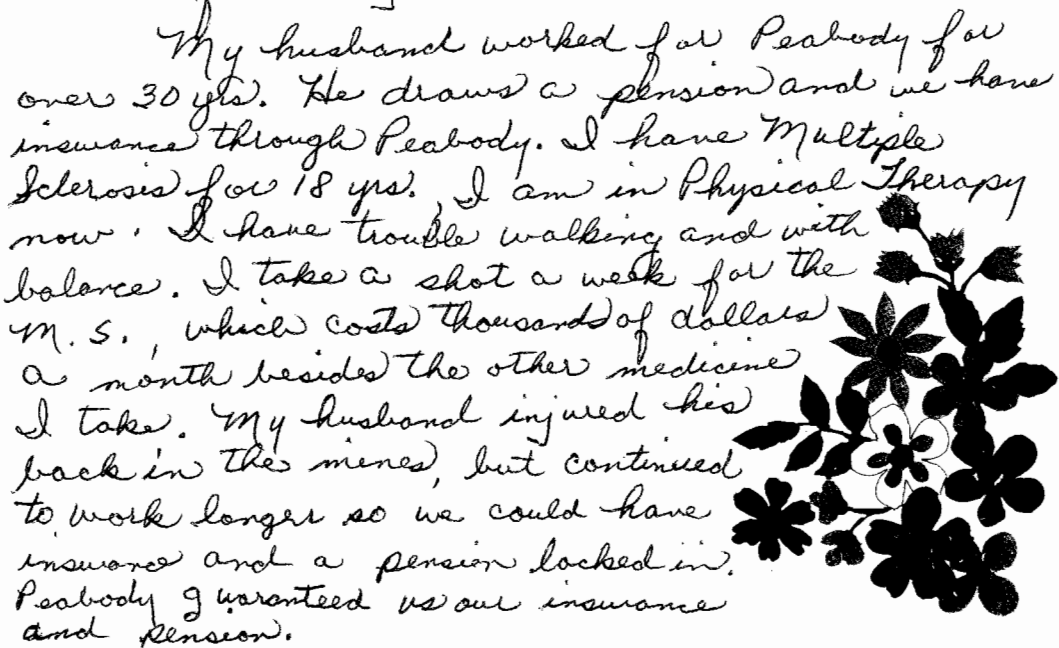 My husband worked for Peabody for
over 30 yrs. He draws a pension and we have
insurance through Peabody. I have Multiple
Sclerosis for 18 yrs. I am in Physical Therapy
now. I have trouble walking and with
balance. I take a shot a week for the
M.S., which costs thousands of dollars
a month besides the other medicine
I take. My husband injured his
back in the mines, but continued
to work longer so we could have
insurance and a pension locked in.
Peabody guaranteed us our insurance
and pension.